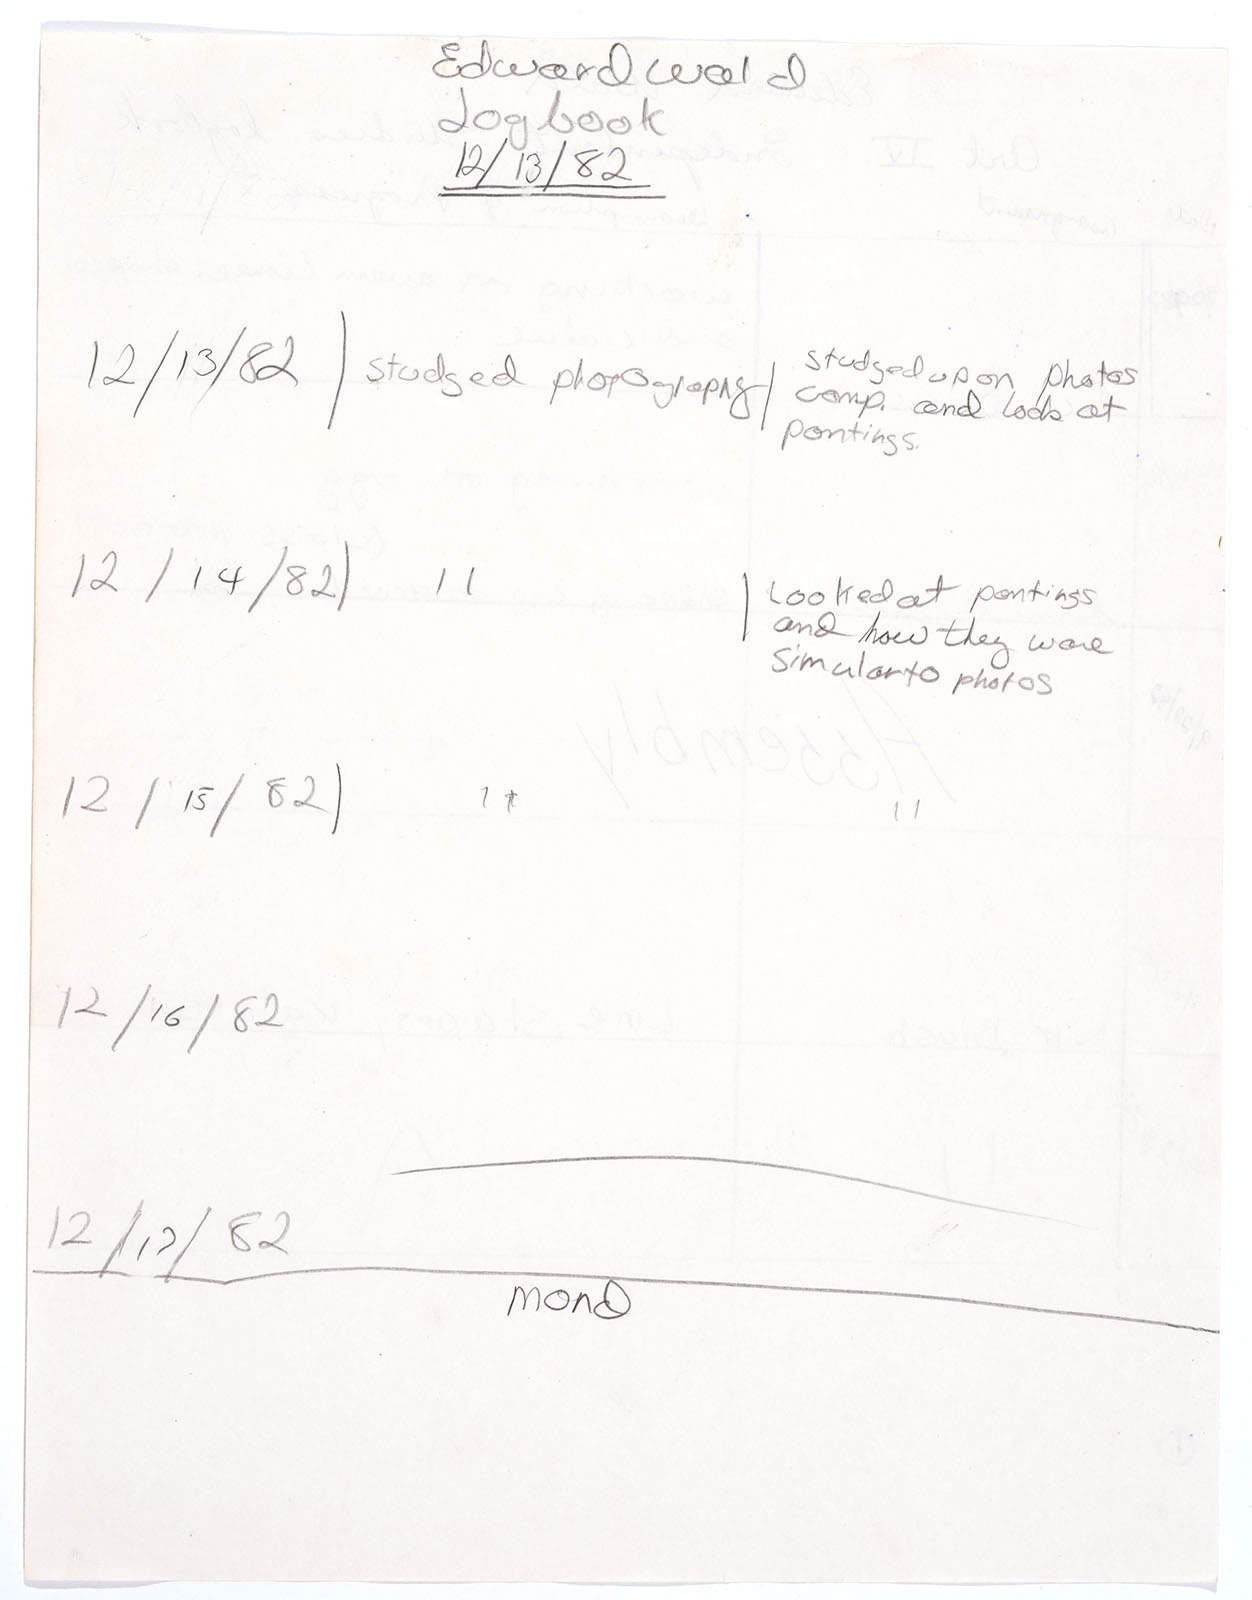 Edward wald
Logbook
12/13/82
12/13/82 | studged photography | studged upon photos
comp. and look at
pantings.
12/14/82 | 11 | Looked at pantings
and how they ware
simular to photos
12/15/82 | 11 11
12/16/82
12/17/82
mond